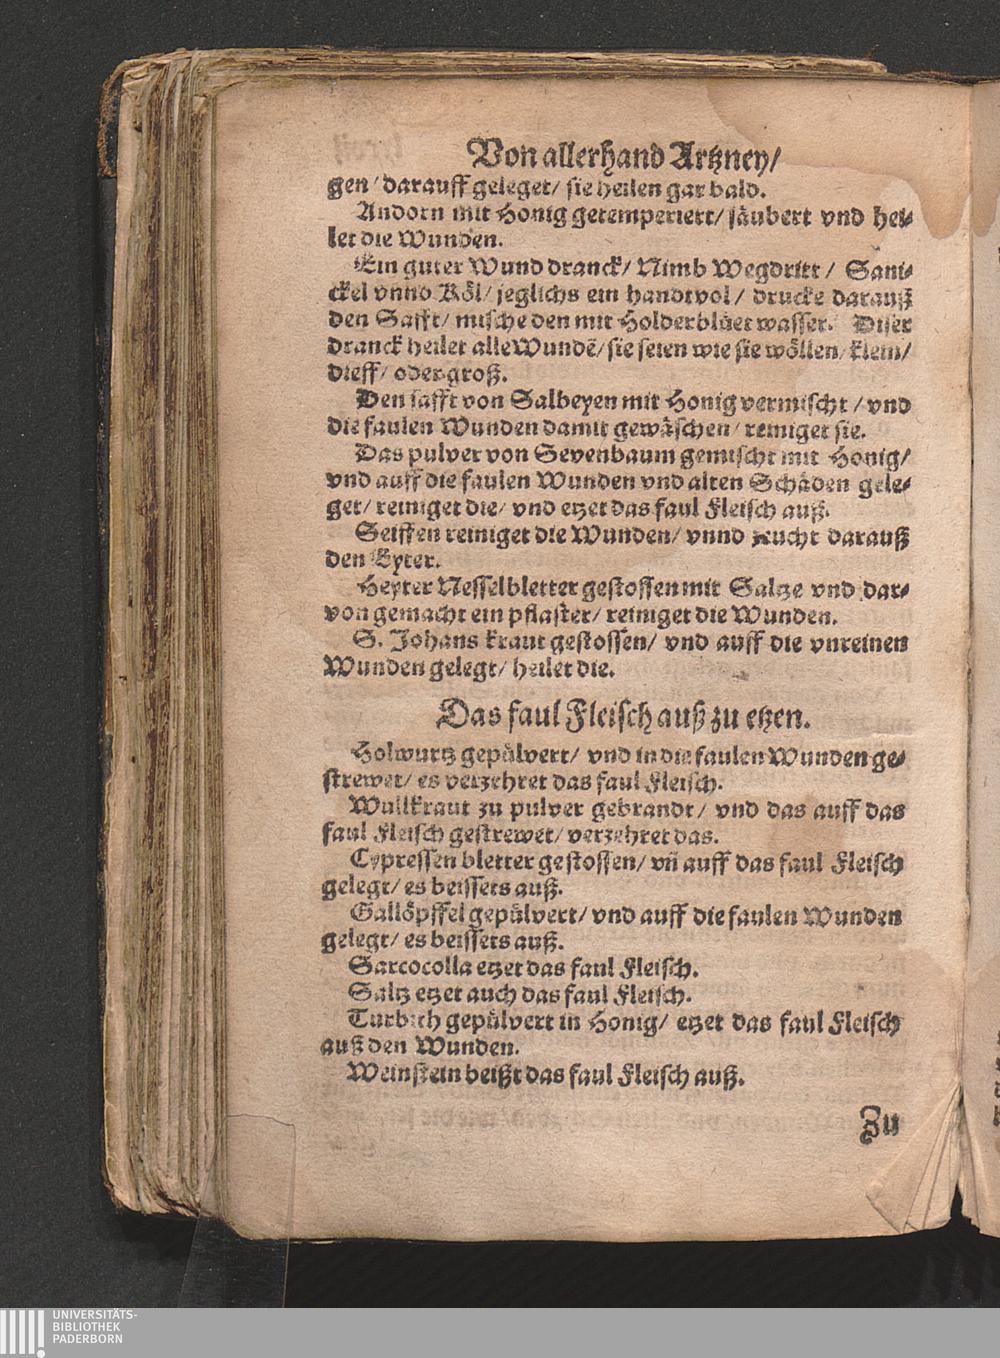 Von allerhand Artzney/
gen/ darauff geleget/ sie heilen gar bald.
Andorn mit Honig getemperiert/ säubert vnd hei-
let die Wunden.
Ein guter Wund dranck/ Nimb Wegdritt/ Sani-
ckel vnnd Köl/ jeglichs ein handtvol/ drucke darauß
den Safft/ mische den mit Holderblüet wasser. Diser
dranck heilet alle Wundẽ/ sie seien wie sie wöllen/ klein/
dieff/ oder groß.
Den safft von Salbeyen mit Honig vermischt/ vnd
die faulen Wunden damit gewäschen/ reiniget sie.
Das pulver von Sevenbaum gemischt mit Honig/
vnd auff die faulen Wunden vnd alten Schäden gele-
get/ reiniget die/ vnd etzet das faul Fleisch auß.
Seiffen reiniget die Wunden/ vnnd zeucht darauß
den Eyter.
Heyter Nesselbletter gestossen mit Saltze vnd dar-
von gemacht ein pflaster/ reiniget die Wunden.
S. Johans kraut gestossen/ vnd auff die vnreinen
Wunden gelegt/ heilet die.
Das faul Fleisch auß zu etzen.
Holwurtz gepülvert/ vnd in die faulen Wunden ge-
strewet/ es verzehret das faul Fleisch.
Wullkraut zu pulver gebrandt/ vnd das auff das
faul Fleisch gestrewet/ verzehret das.
Cypressen bletter gestossen/ vñ auff das faul Fleisch
gelegt/ es beissets auß.
Gallöpffel gepülvert/ vnd auff die faulen Wunden
gelegt/ es beissets auß.
Sarcocolla etzet das faul Fleisch.
Saltz etzet auch das faul Fleisch.
Turbith gepülvert in Honig/ etzet das faul Fleisch
auß den Wunden.
Weinstein beißt das faul Fleisch auß.
Zu
UNIVERSITÄTS-
BIBLIOTHEK
PADERBORN